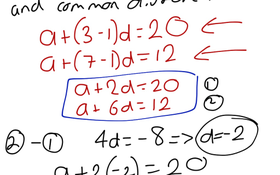 and common
a+(3-1)d=20 ←
a+(7-1)d=12 ←
a+2d=20 ①
a+6d=12 ②
②-① 4d=-8 => d=-2
a+2(-2)=20